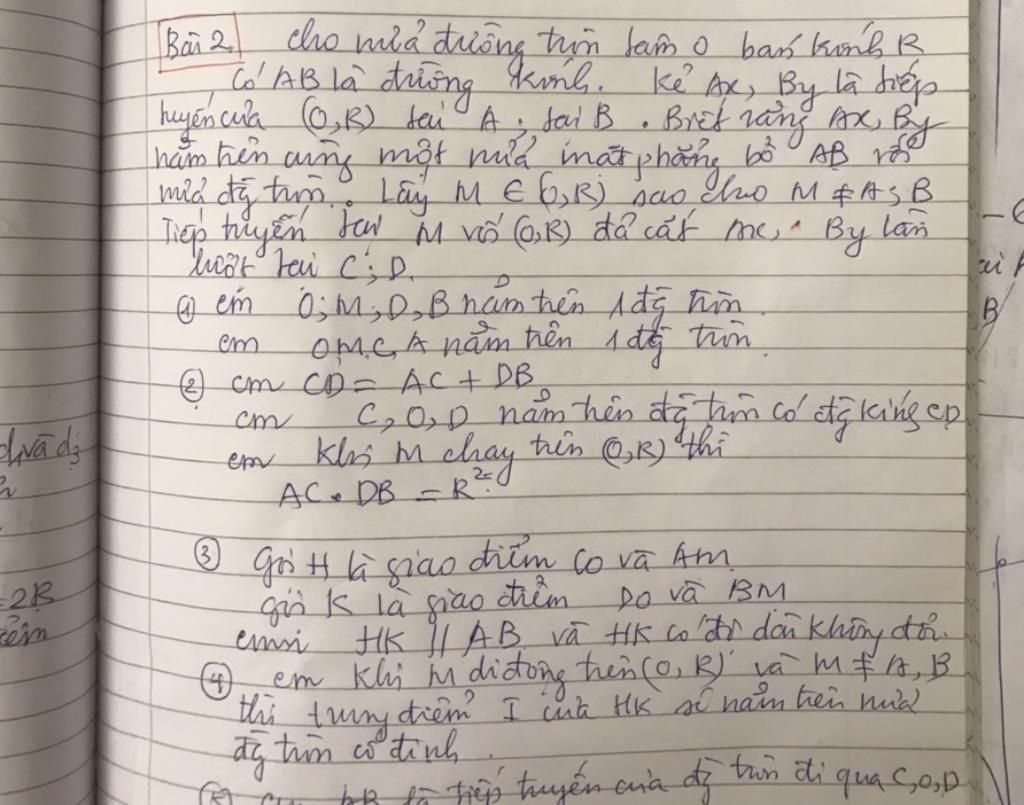 Bài 2 cho nửa đường tròn tâm O bán kính R
có AB là đường kính. Kẻ Ax, By là tiếp
tuyến của (O,R) tại A; tại B. Biết rằng Ax, By
nằm trên cùng một nửa mặt phẳng bờ AB với
nửa đg tròn. Lấy M ∈ (O,R) sao cho M ≠ A; B
Tiếp tuyến tại M với (O,R) đã cắt Ax, By lần
lượt tại C; D.
① cm O; M; D, B nằm trên 1 đg tròn.
cm O,M,C,A nằm trên 1 đg tròn.
② cm CD = AC + DB
cm C, O, D nằm trên đg tròn có đg kính CD
cm khi M chạy trên (O,R) thì
AC . DB = R²
③ Gọi H là giao điểm CO và AM.
gọi K là giao điểm DO và BM
HK // AB và HK có độ dài không đổi.
④ cm khi M di động trên (O, R) và M ≠ A, B
thì trung điểm I của HK sẽ nằm trên nửa
đg tròn cố định.
là tiếp tuyến của đg tròn đi qua C,O,D
d và
= 2R
B